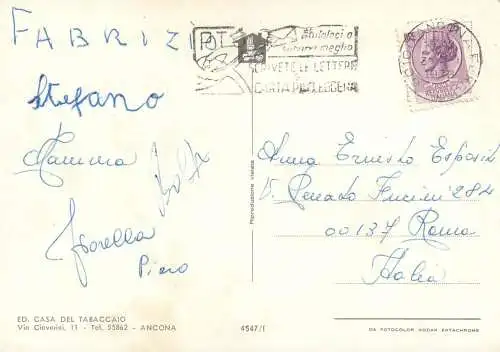 FABRIZIO
Stefano
Mamma
Fiorella
Piero
PT
aiutateci a
servirvi meglio
SCRIVETE LE LETTERE
CARTA PIÙ LEGGERA
Anna Ernesto Esposito
V. Renato Fucini 284
00137 Roma
Italia
Riproduzione vietata
ED. CASA DEL TABACCAIO
Via Cioverini, 11 - Tel. 55862 - ANCONA
4547/I
DA FOTOCOLOR KODAK EKTACHROME